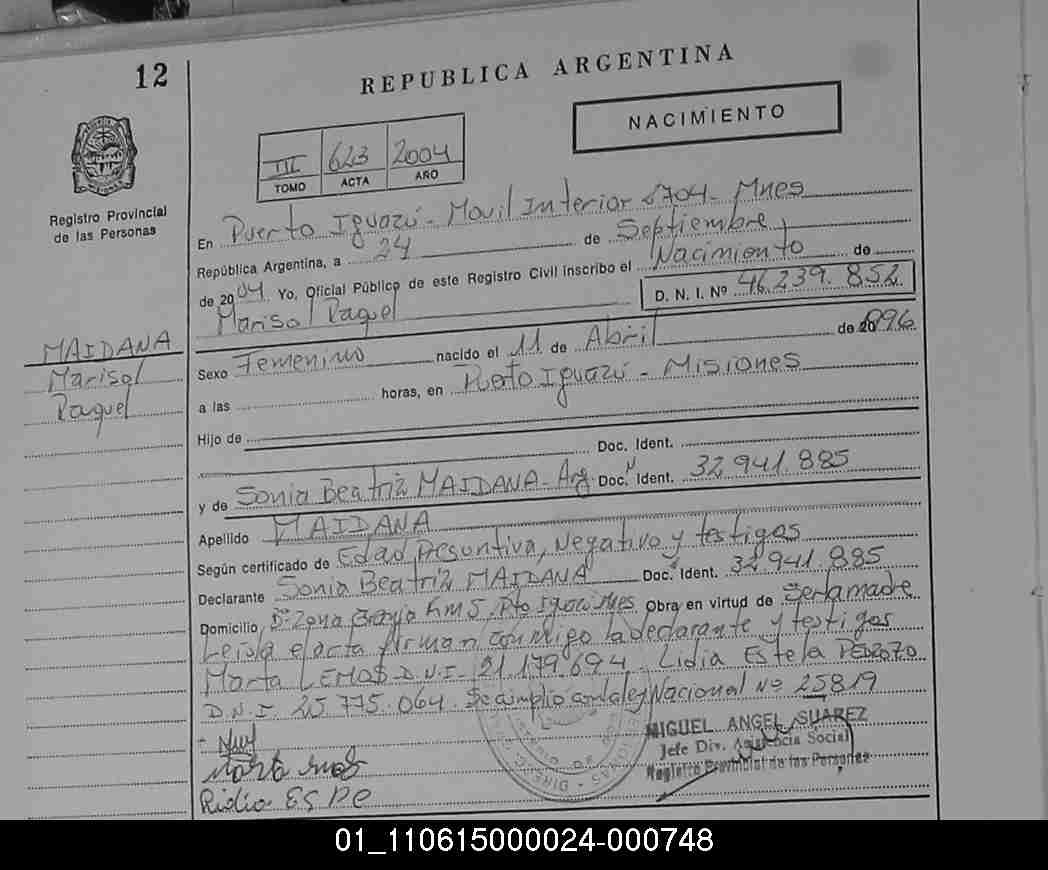 12
REPUBLICA ARGENTINA
NACIMIENTO
III 623 2004
TOMO ACTA AÑO
Registro Provincial
de las Personas
En Puerto Iguazú - Movil Interior 1704 - Mnes
República Argentina, a 24 de Septiembre
de 2004 Yo, Oficial Público de este Registro Civil inscribo el Nacimiento de
Marisol Raquel D. N. I. Nº 46.239.852
MAIDANA
Marisol
Raquel
Sexo Femenino nacido el 11 de Abril de 20 1996
a las horas, en Puerto Iguazú - Misiones
Hijo de
Doc. Ident.
y de Sonia Beatriz MAIDANA - Arg Doc. Ident. 32.941.885
Apellido MAIDANA
Según certificado de Edad Presuntiva, Negativo y testigos
Declarante Sonia Beatriz MAIDANA Doc. Ident. 32.941.885
Domicilio Zona Km 5, Pto Iguazú Mnes Obra en virtud de Ser la madre
Leída el acta firman conmigo la declarante y testigos
Marta LEMOS D.N.I. 21.179.694 - Lidia Estela PEDROZO
D.N.I. 25.775.064. Se cumplio con la ley Nacional Nº 25819
MIGUEL ANGEL SUAREZ
Jefe Div. Asistencia Social
Registro Provincial de las Personas
01_110615000024-000748